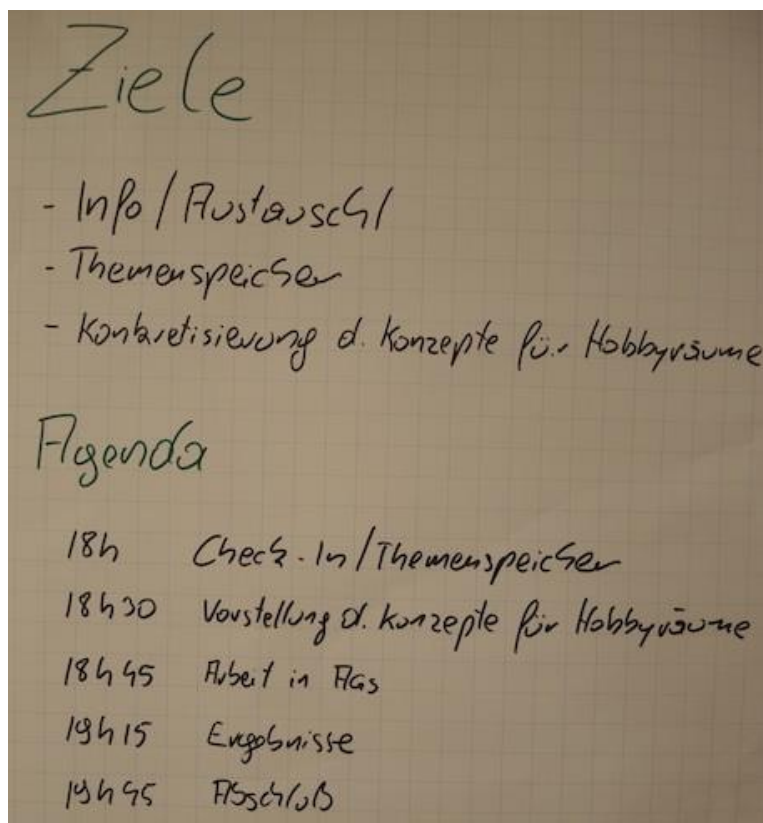 Ziele
- Info / Austausch
- Themenspeicher
- Konkretisierung d. Konzepte für Hobbyräume
Agenda
18h Check-In / Themenspeicher
18h30 Vorstellung d. Konzepte für Hobbyräume
18h45 Arbeit in AGs
19h15 Ergebnisse
19h45 Abschluß